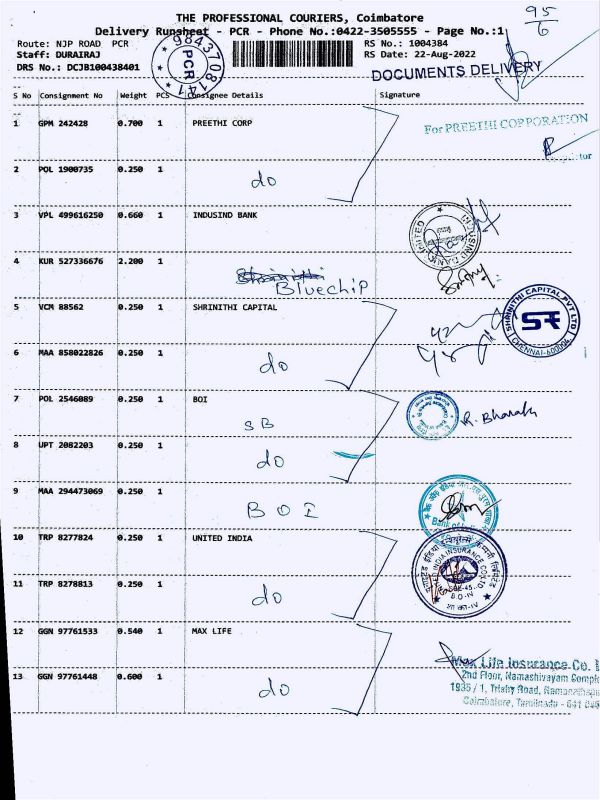 THE PROFESSIONAL COURIERS, Coimbatore
95/6
Delivery Runsheet - PCR - Phone No.:0422-3505555 - Page No.:1
Route: NJP ROAD PCR
RS No.: 1004384
Staff: DURAIRAJ
RS Date: 22-Aug-2022
DRS No.: DCJB100438401
9843708141
PCR
DOCUMENTS DELIVERY
S No Consignment No Weight PCS Consignee Details Signature
1 GPM 242428 0.700 1 PREETHI CORP
For PREETHI CORPORATION
2 POL 1900735 0.250 1 do
3 VPL 499616250 0.660 1 INDUSIND BANK
4 KUR 527336676 2.200 1 Bluechip
5 VCM 88562 0.250 1 SHRINITHI CAPITAL
SHRINITHI CAPITAL PVT LTD
CHENNAI-600004
6 MAA 858022826 0.250 1 do
7 POL 2546089 0.250 1 BOI
SB
R. Bharath
8 UPT 2082203 0.250 1 do
9 MAA 294473069 0.250 1 BOI
10 TRP 8277824 0.250 1 UNITED INDIA
UNITED INDIA INSURANCE CO. LTD.
11 TRP 8278813 0.250 1 do
12 GGN 97761533 0.540 1 MAX LIFE
13 GGN 97761448 0.600 1 do
Max Life Insurance Co.
2nd Floor, Namashivayam
1935 / 1, Trichy Road,
Coimbatore, Tamilnadu